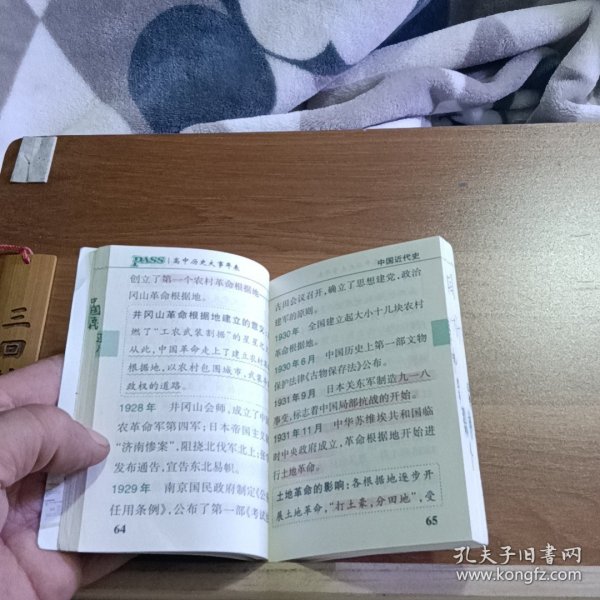 PASS 高中历史大事年表
创立了第一个农村革命根据地
冈山革命根据地。
井冈山革命根据地建立的意义
燃了“工农武装割据”的星星之
从此,中国革命走上了建立农村
根据地,以农村包围城市,武装
政权的道路。
1928年 井冈山会师,成立了中
农革命军第四军;日本帝国主义
“济南惨案”,阻挠北伐军北上;
发布通告,宣告东北易帜。
1929年 南京国民政府制定《
任用条例》,公布了第一部《考试
64
中国近代史
古田会议召开,确立了思想建党,政治
建军的原则。
1930年 全国建立起大小十几块农村
革命根据地。
1930年6月 中国历史上第一部文物
保护法律《古物保存法》公布。
1931年9月 日本关东军制造九一八
事变,标志着中国局部抗战的开始。
1931年11月 中华苏维埃共和国临
时中央政府成立,革命根据地开始进
行土地革命。
土地革命的影响:各根据地逐步开
展土地革命,“打土豪,分田地”,受
65
三回
孔夫子旧书网
www.kongfz.com